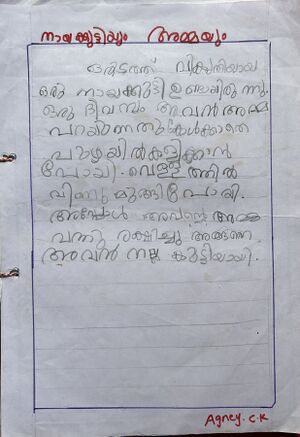 നായക്കുട്ടിയും അമ്മയും
ഒരിടത്ത് വികൃതിയായ
ഒരു നായക്കുട്ടി ഉണ്ടായിരുന്നു.
ഒരു ദിവസം അവൻ അമ്മ
പറയുന്നതു കേൾക്കാതെ
പുഴയിൽ കളിക്കാൻ
പോയി. വെള്ളത്തിൽ
വീണു മുങ്ങിപോയി.
അപ്പോൾ അവന്റെ അമ്മ
വന്നു രക്ഷിച്ചു അങ്ങനെ
അവൻ നല്ല കുട്ടിയായി.
Agney. C.K